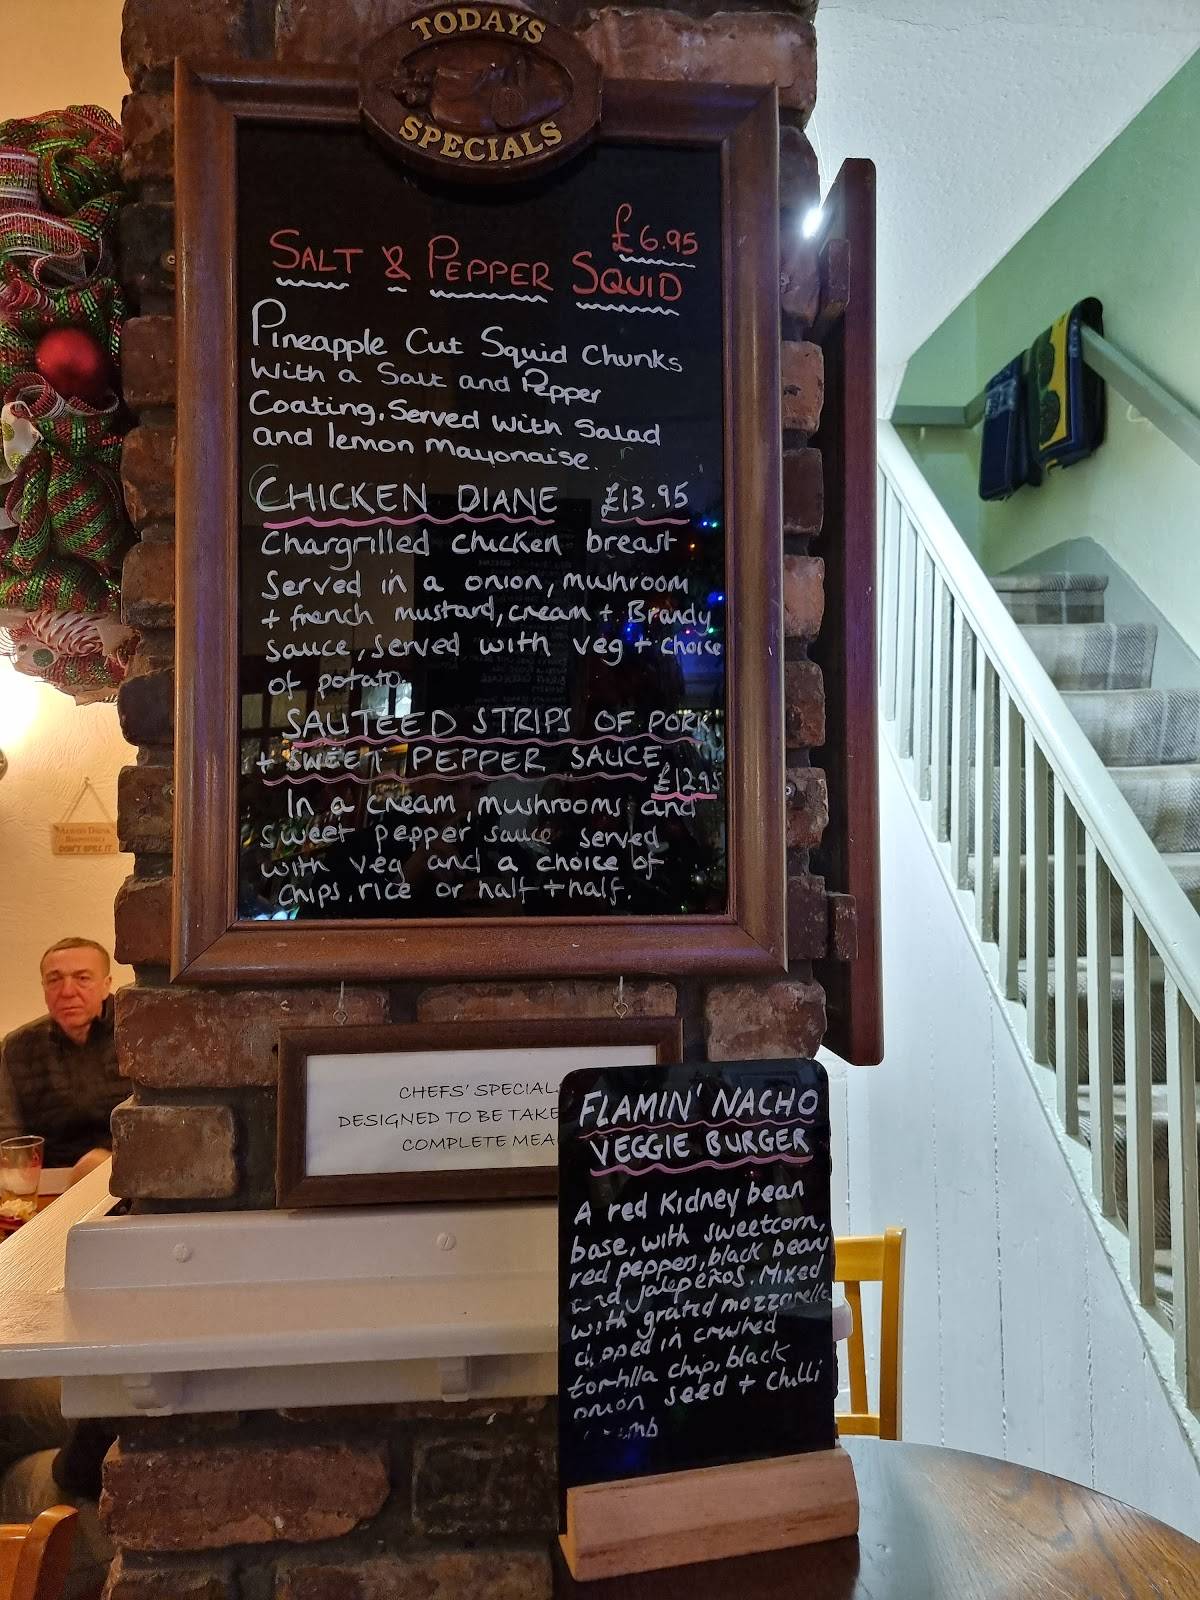 TODAYS
SPECIALS
£6.95
SALT & PEPPER SQUID
Pineapple Cut Squid Chunks
With a Salt and Pepper
Coating, Served With Salad
and lemon Mayonaise.
CHICKEN DIANE £13.95
Chargrilled chicken breast
Served in a onion, mushroom
+ french mustard, cream + Brandy
sauce, served with veg + choice
of potato.
SAUTEED STRIPS OF PORK
+ SWEET PEPPER SAUCE
£12.95
In a cream, mushrooms and
sweet pepper sauce served
with veg and a choice of
chips, rice or half + half.
CHEFS' SPECIAL
DESIGNED TO BE TAKE
COMPLETE MEA
FLAMIN' NACHO
VEGGIE BURGER
A red Kidney bean
base, with sweetcorn,
red peppers, black bean
and jalapeños. Mixed
with grated mozzarella
dipped in crushed
tortilla chip, black
onion seed + Chilli
DON'T SPILL IT